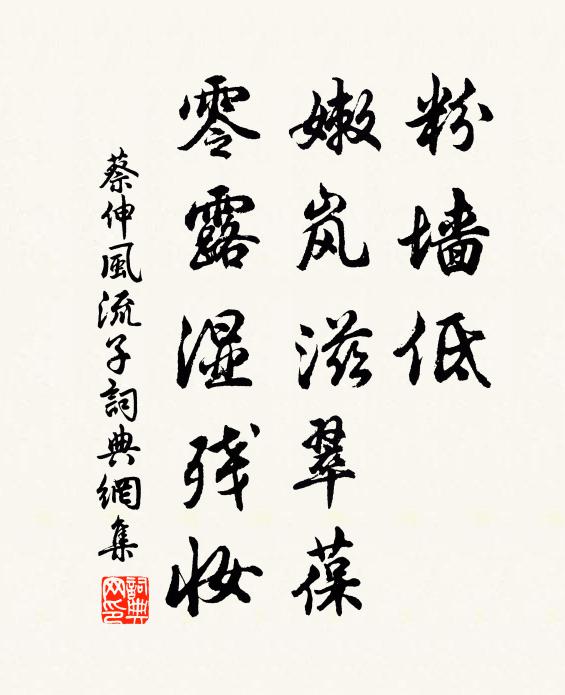 粉墙低
嫩岚滋翠葆
零露湿残妆
蔡伸風流子詞典網集
詞典网印